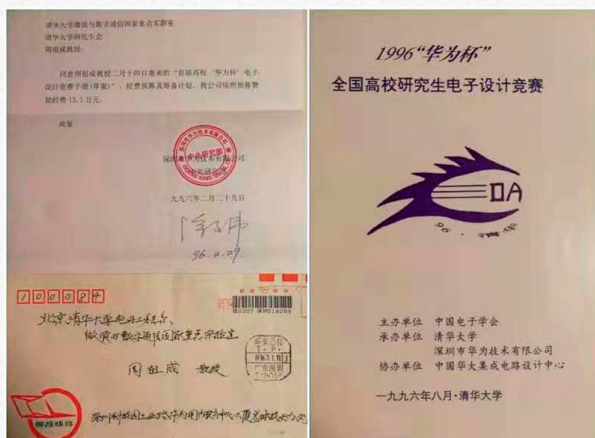 清华大学微波与数字通信国家重点实验室
清华大学研究生会
周祖成教授:
同意周祖成教授二月十四日寄来的“首届高校‘华为杯’电子
设计竞赛手册(草案)”、经费预算及筹备计划。我公司依照预算赞
助经费13.5万元。
此复
深圳市华为技术有限公司
一九九六年二月二十九日
96.2.29
100084
北京清华大学电子工程系
微波与数字通信国家重点实验室
周祖成 教授
1996“华为杯”
全国高校研究生电子设计竞赛
EDA
96·清华
主办单位 中国电子学会
承办单位 清华大学
深圳市华为技术有限公司
协办单位 中国华大集成电路设计中心
一九九六年八月·清华大学